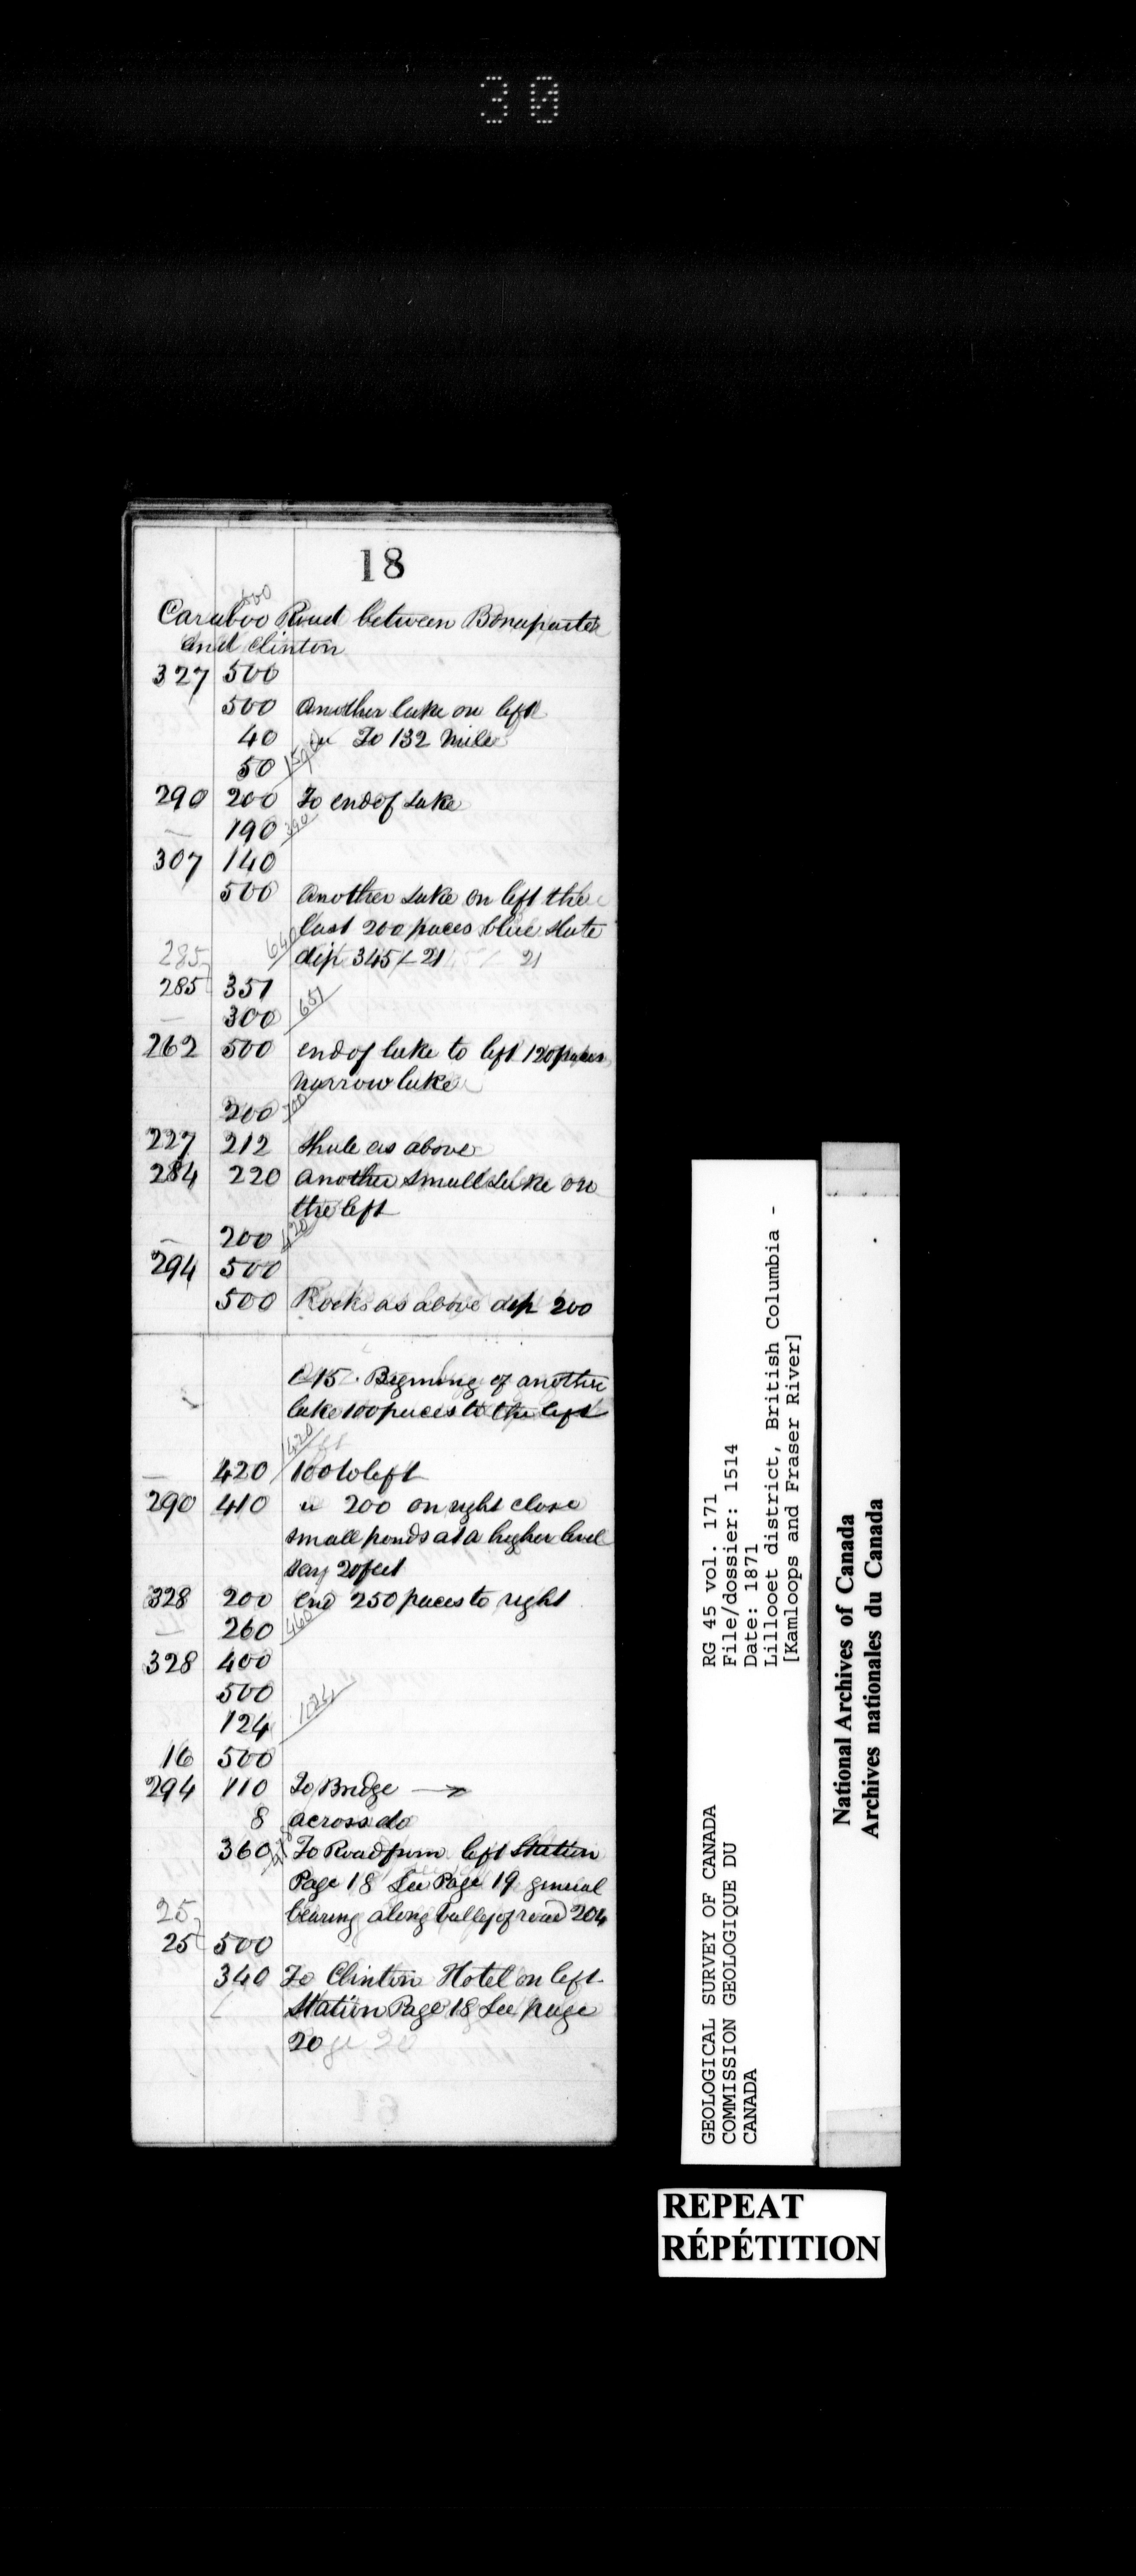 30
18
500
Caraboo Road between Bonaparte
and Clinton
327 500
500 Another lake on left
40 To 132 Mile
50 1590
290 200 To end of Lake
— 190 390
307 140
500 Another Lake on left the
last 200 paces blue slate
285 640 dip 345 ∠ 21 21
285 351
— 300 651
262 500 end of lake to left 120 paces
narrow lake
200 700
227 212 Shale as above
284 220 Another small Lake on
the left
— 200 420
294 500
500 Rocks as above dip 200
∠ 15. Begining of another
lake 100 paces to the left
1420
— 420 100 to left
290 410 " 200 on right close
small ponds at a higher level
say 20 feet
328 200 end 250 paces to right
260 460
328 400
500
124 1024
16 500
294 110 To Bridge →
8 across do
360 To Road from left Station
Page 18 See Page 19 general
25 bearing along valley of road 204
25 500
340 To Clinton Hotel on left
Station Page 18 See page
20
GEOLOGICAL SURVEY OF CANADA
COMMISSION GEOLOGIQUE DU
CANADA
RG 45 vol. 171
File/dossier: 1514
Date: 1871
Lillooet district, British Columbia -
[Kamloops and Fraser River]
National Archives of Canada
Archives nationales du Canada
REPEAT
RÉPÉTITION